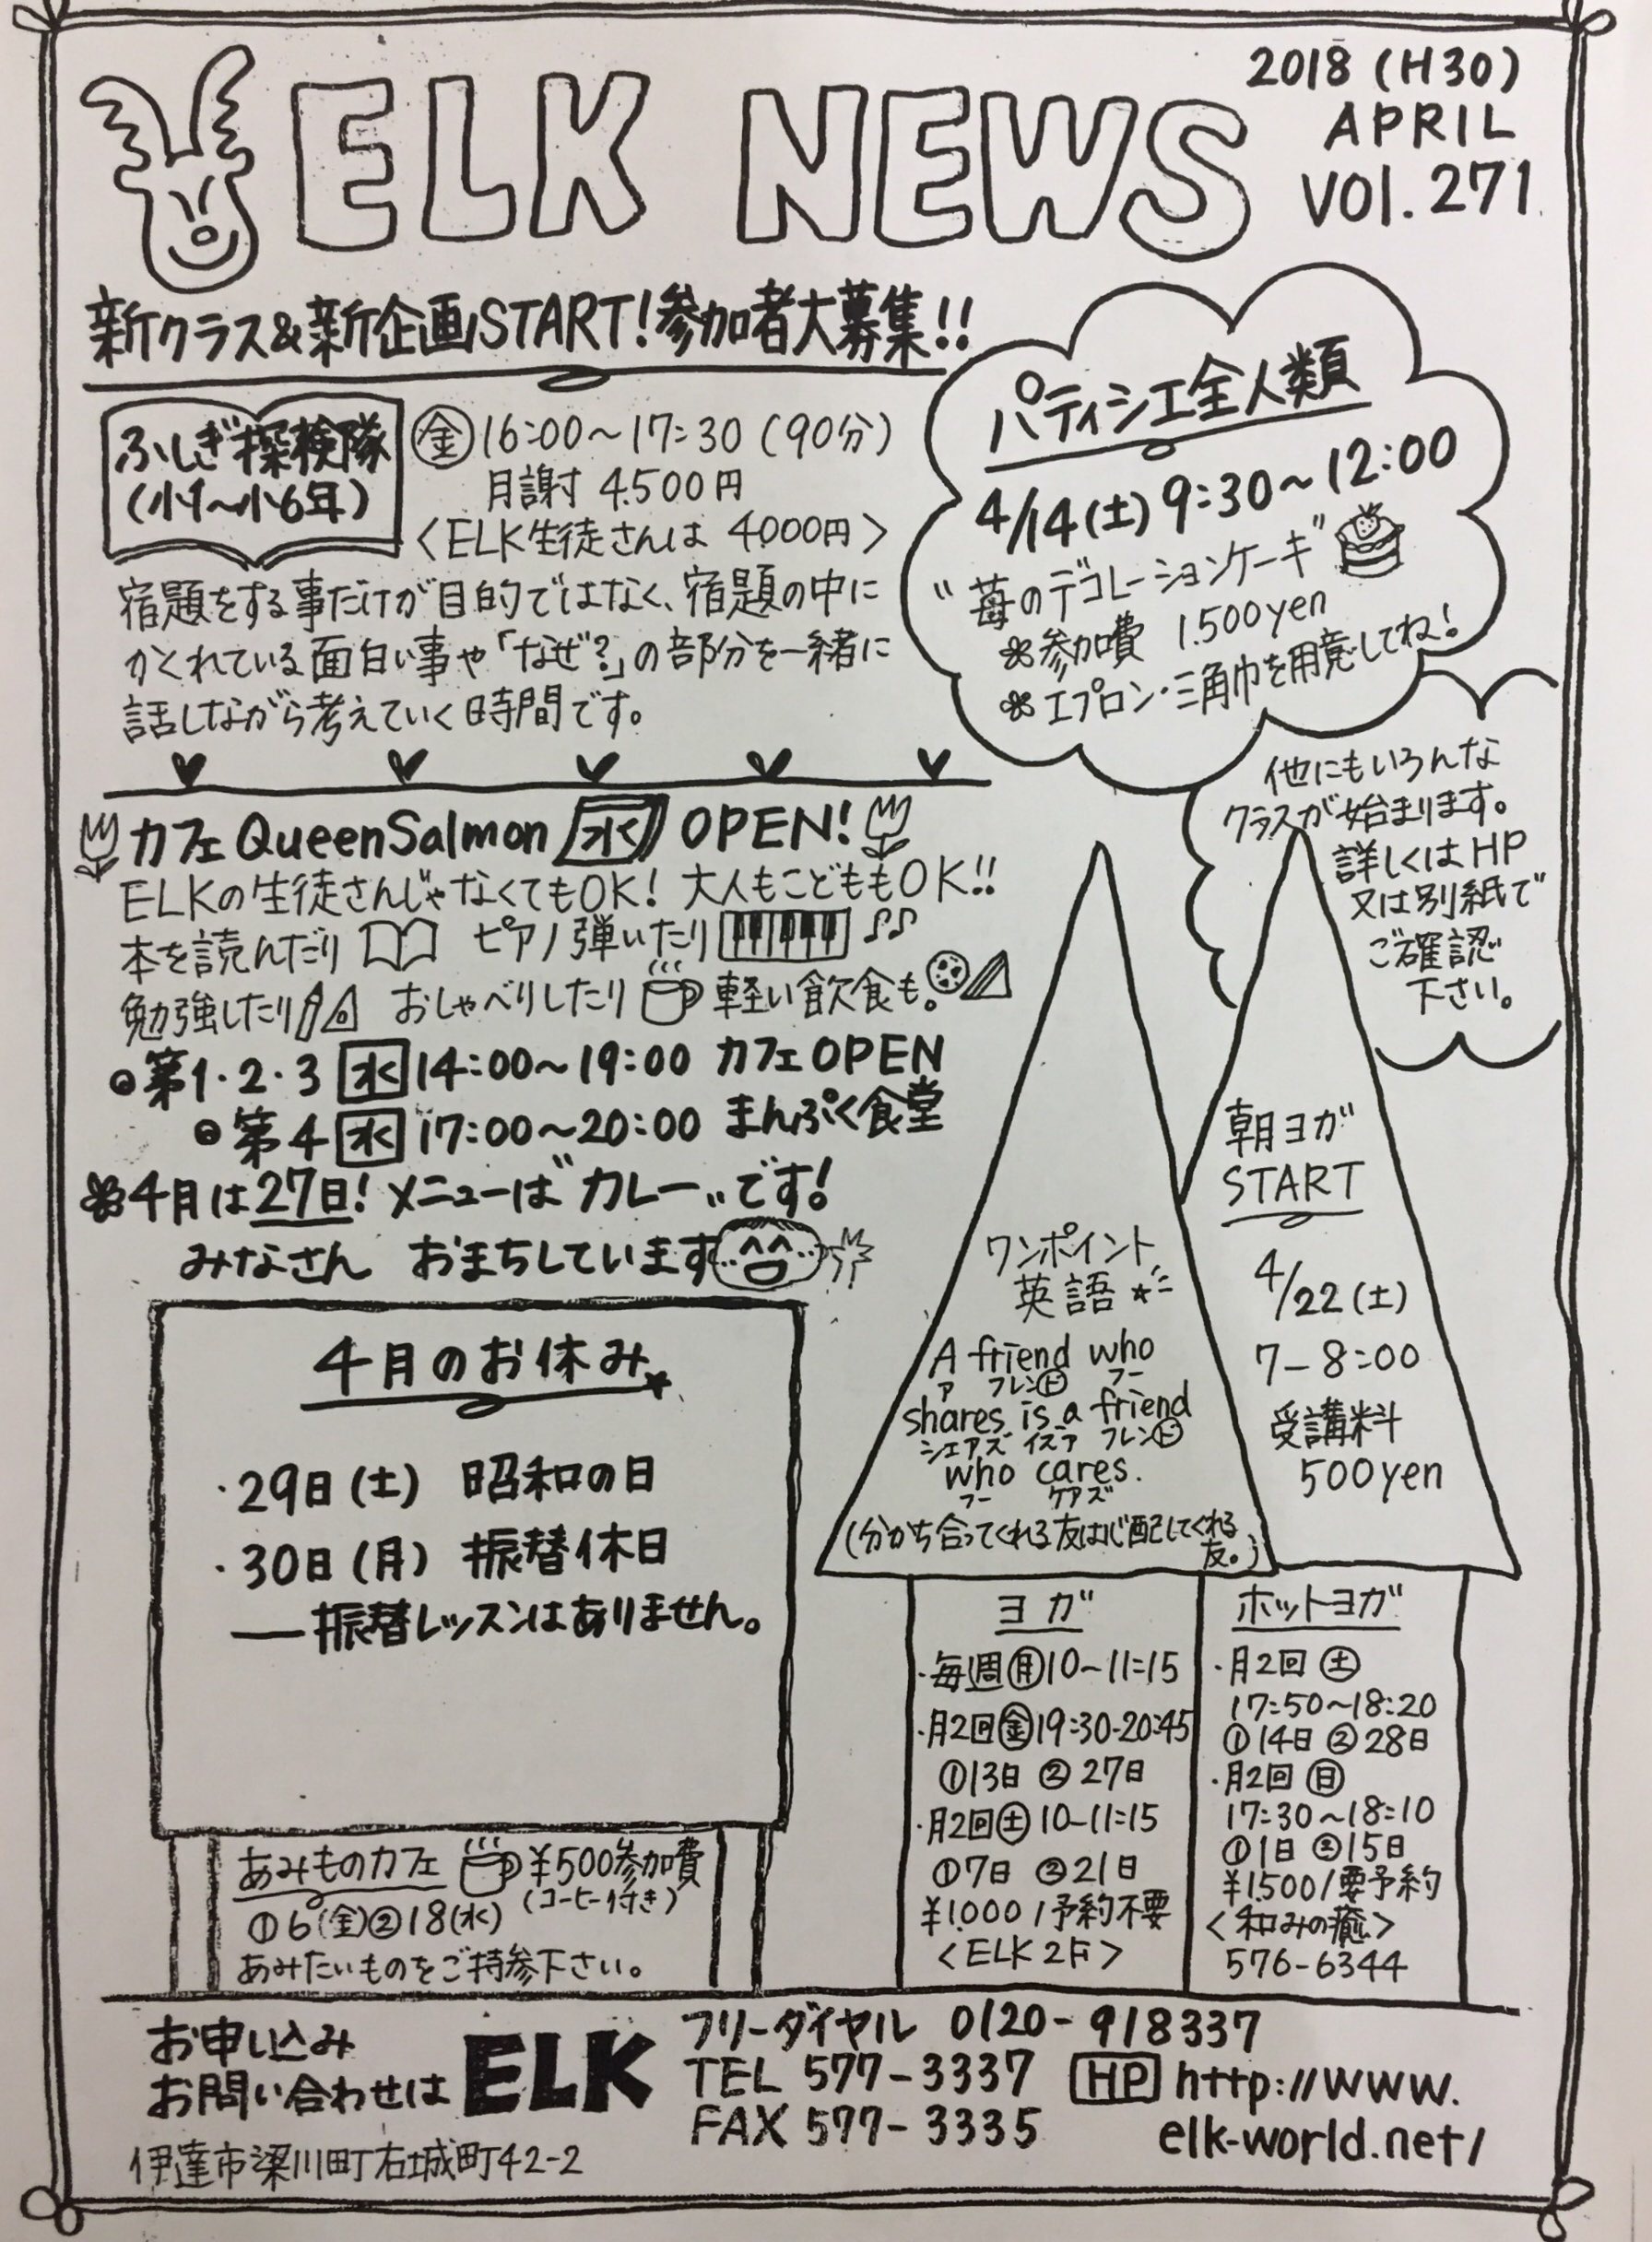 ELK NEWS
2018 (H30)
APRIL
VOl. 271
新クラス&新企画START!参加者大募集!!
ふしぎ探検隊
(小1〜小6年)
金 16:00〜17:30 (90分)
月謝 4.500円
<ELK生徒さんは 4000円>
宿題をする事だけが目的ではなく、宿題の中に
かくれている面白い事や「なぜ?」の部分を一緒に
話しながら考えていく時間です。
パティシエ全人類
4/14(土) 9:30〜12:00
"苺のデコレーションケーキ"
参加費 1.500yen
エプロン・三角巾を用意してね!
他にもいろんな
クラスが始まります。
詳しくはHP
又は別紙で
ご確認
下さい。
カフェ QueenSalmon 水 OPEN!
ELKの生徒さんじゃなくてもOK! 大人もこどももOK!!
本を読んだり ピアノ弾いたり ♪♪
勉強したり おしゃべりしたり 軽い飲食も。
第1・2・3 水 14:00〜19:00 カフェOPEN
第4 水 17:00〜20:00 まんぷく食堂
4月は27日! メニューは"カレー"です!
みなさん おまちしています
4月のお休み
・29日(土) 昭和の日
・30日(月) 振替休日
—振替レッスンはありません。
あみものカフェ ¥500参加費
(コーヒー付き)
①6(金)②18(水)
あみたいものをご持参下さい。
ワンポイント
英語
A friend who
ア フレンド フー
shares is a friend
シェアズ イズア フレンド
who cares.
フー ケアズ
(分かち合ってくれる友は心配してくれる
友。)
朝ヨガ
START
4/22(土)
7-8:00
受講料
500yen
ヨガ
・毎週月10-11:15
・月2回金19:30-20:45
①13日 ②27日
・月2回土10-11:15
①7日 ②21日
¥1.000/予約不要
<ELK 2F>
ホットヨガ
・月2回 土
17:50〜18:20
①14日 ②28日
・月2回 日
17:30〜18:10
①1日 ②15日
¥1.500/要予約
<和みの癒>
576-6344
お申し込み
お問い合わせは
ELK
フリーダイヤル 0120-918337
TEL 577-3337
FAX 577-3335
HP http://www.
elk-world.net/
伊達市梁川町右城町42-2